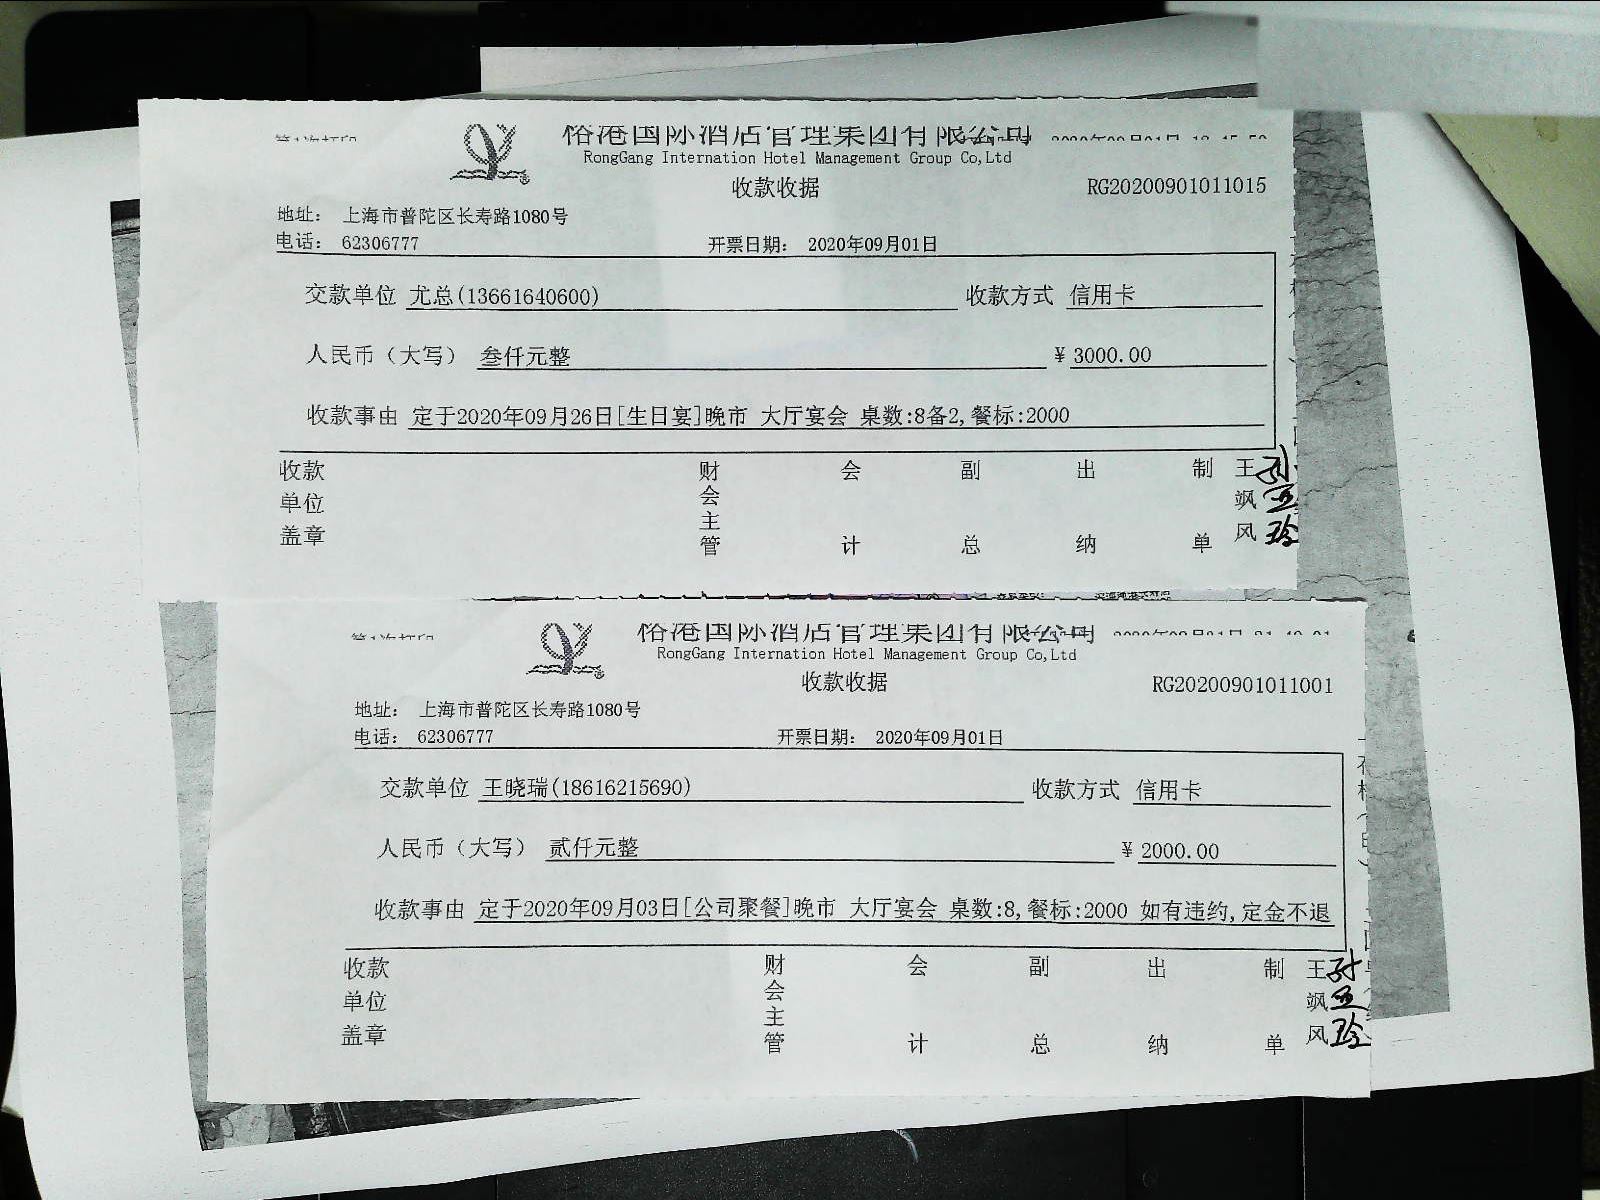 第1次打印
裕港国际酒店管理集团有限公司
RongGang Internation Hotel Management Group Co,Ltd
收款收据
RG20200901011015
地址： 上海市普陀区长寿路1080号
电话： 62306777 开票日期： 2020年09月01日
交款单位 尤总(13661640600) 收款方式 信用卡
人民币（大写） 叁仟元整 ￥3000.00
收款事由 定于2020年09月26日[生日宴]晚市 大厅宴会 桌数:8备2,餐标:2000
收款单位盖章 财会主管 会计 副总 出纳 制单 王飒风 孙亚玲
第1次打印
裕港国际酒店管理集团有限公司
RongGang Internation Hotel Management Group Co,Ltd
收款收据
RG20200901011001
地址： 上海市普陀区长寿路1080号
电话： 62306777 开票日期： 2020年09月01日
交款单位 王晓瑞(18616215690) 收款方式 信用卡
人民币（大写） 贰仟元整 ￥2000.00
收款事由 定于2020年09月03日[公司聚餐]晚市 大厅宴会 桌数:8,餐标:2000 如有违约,定金不退
收款单位盖章 财会主管 会计 副总 出纳 制单 王飒风 孙亚玲